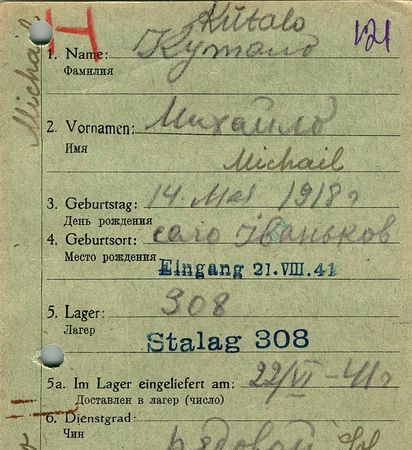 Kutalo
H
121
1. Name: Кутало
Фамилия
Michail
2. Vornamen: Михайло
Имя
Michail
3. Geburtstag: 14 Мая 1918 г
День рождения
4. Geburtsort: село Іваньков
Место рождения
Eingang 21. VIII. 41
5. Lager: 308
Лагер
Stalag 308
5a. Im Lager eingeliefert am: 22/VI - 41 г
Доставлен в лагер (число)
6. Dienstgrad:
Чин
рядовой